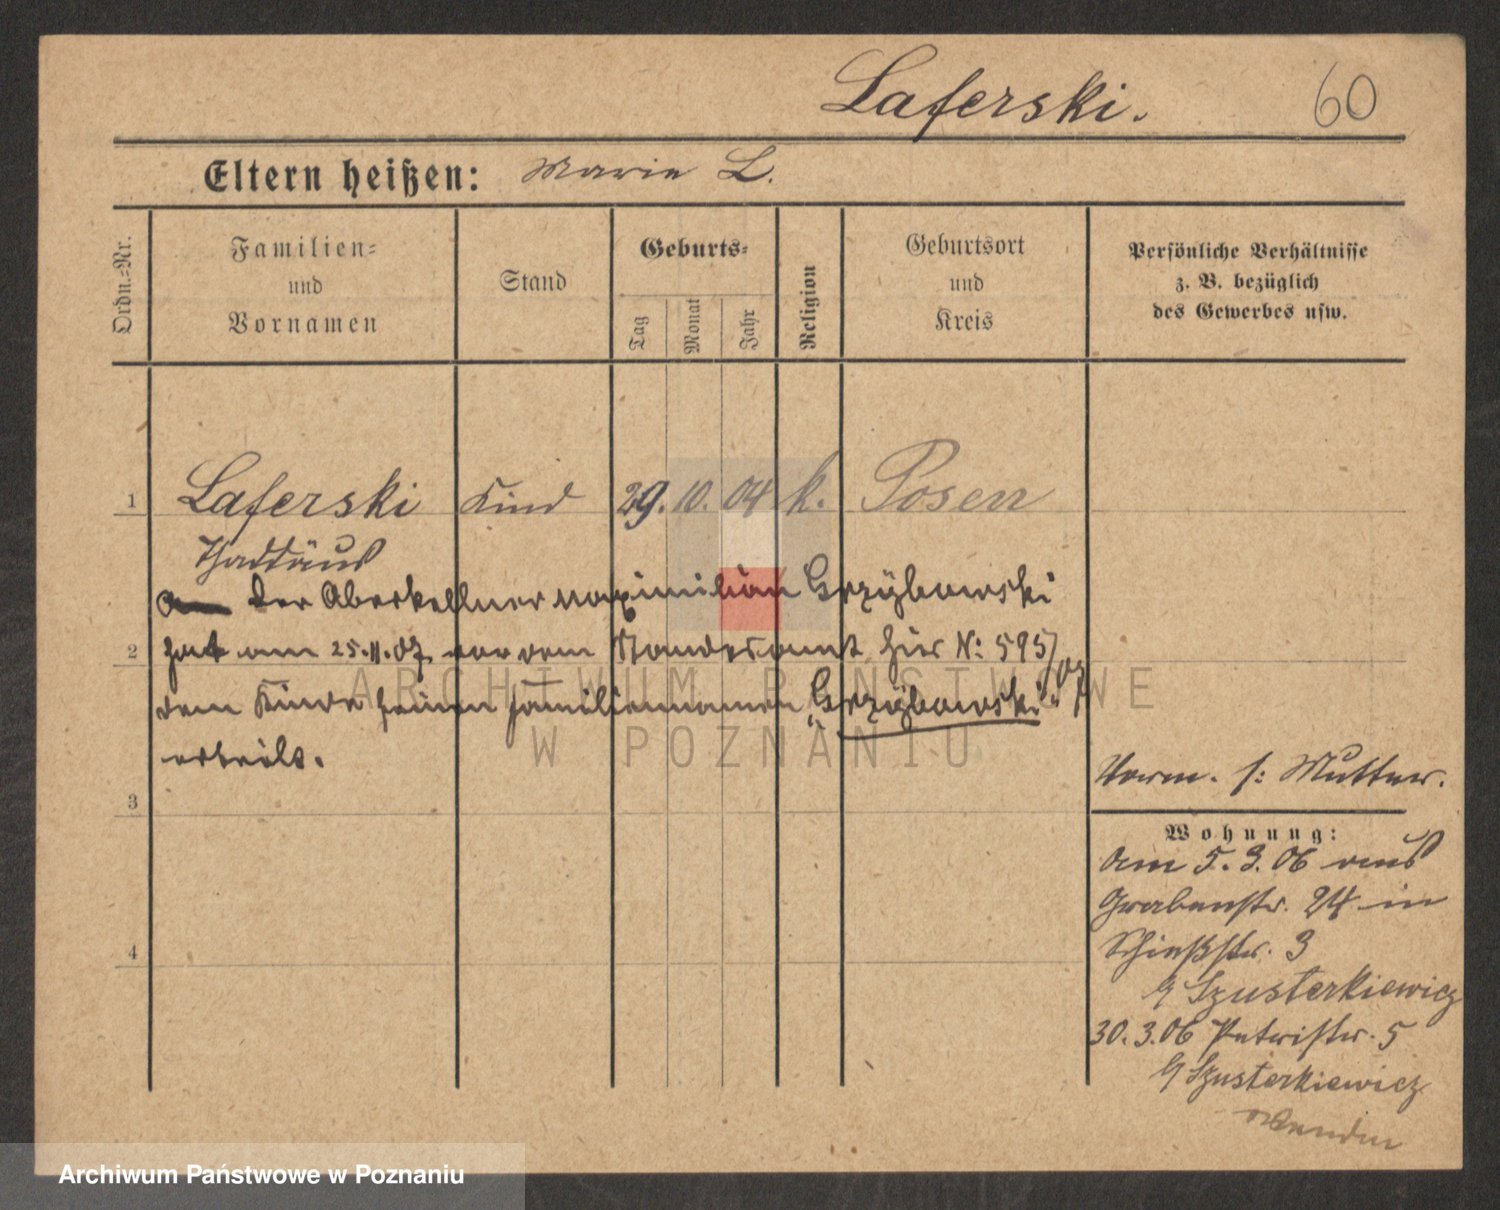 Laferski. 60
Eltern heißen: Marie L.
Ordn.=Nr.
Familien=
und
Vornamen
Stand
Geburts=
Tag
Monat
Jahr
Religion
Geburtsort
und
Kreis
Persönliche Verhältnisse
z. B. bezüglich
des Gewerbes usw.
1 Laferski Kind 29. 10. 04 k. Posen
Thaddäus
Der Oberkellner Maximilian Grzÿbowski
2 hat am 25.11.07 vor dem Standesamt hier N: 595/07
dem Kinde seinen Familiennamen „Grzÿbowski"
erteilt.
3
4
Vorm. s: Mutter.
Wohnung:
Am 5.3.06 aus
Grabenstr. 24 in
Schießstr. 3
Szusterkiewicz
30.3.06 Petristr. 5
Szusterkiewicz
wenden
ARCHIWUM PAŃSTWOWE
W POZNANIU
Archiwum Państwowe w Poznaniu